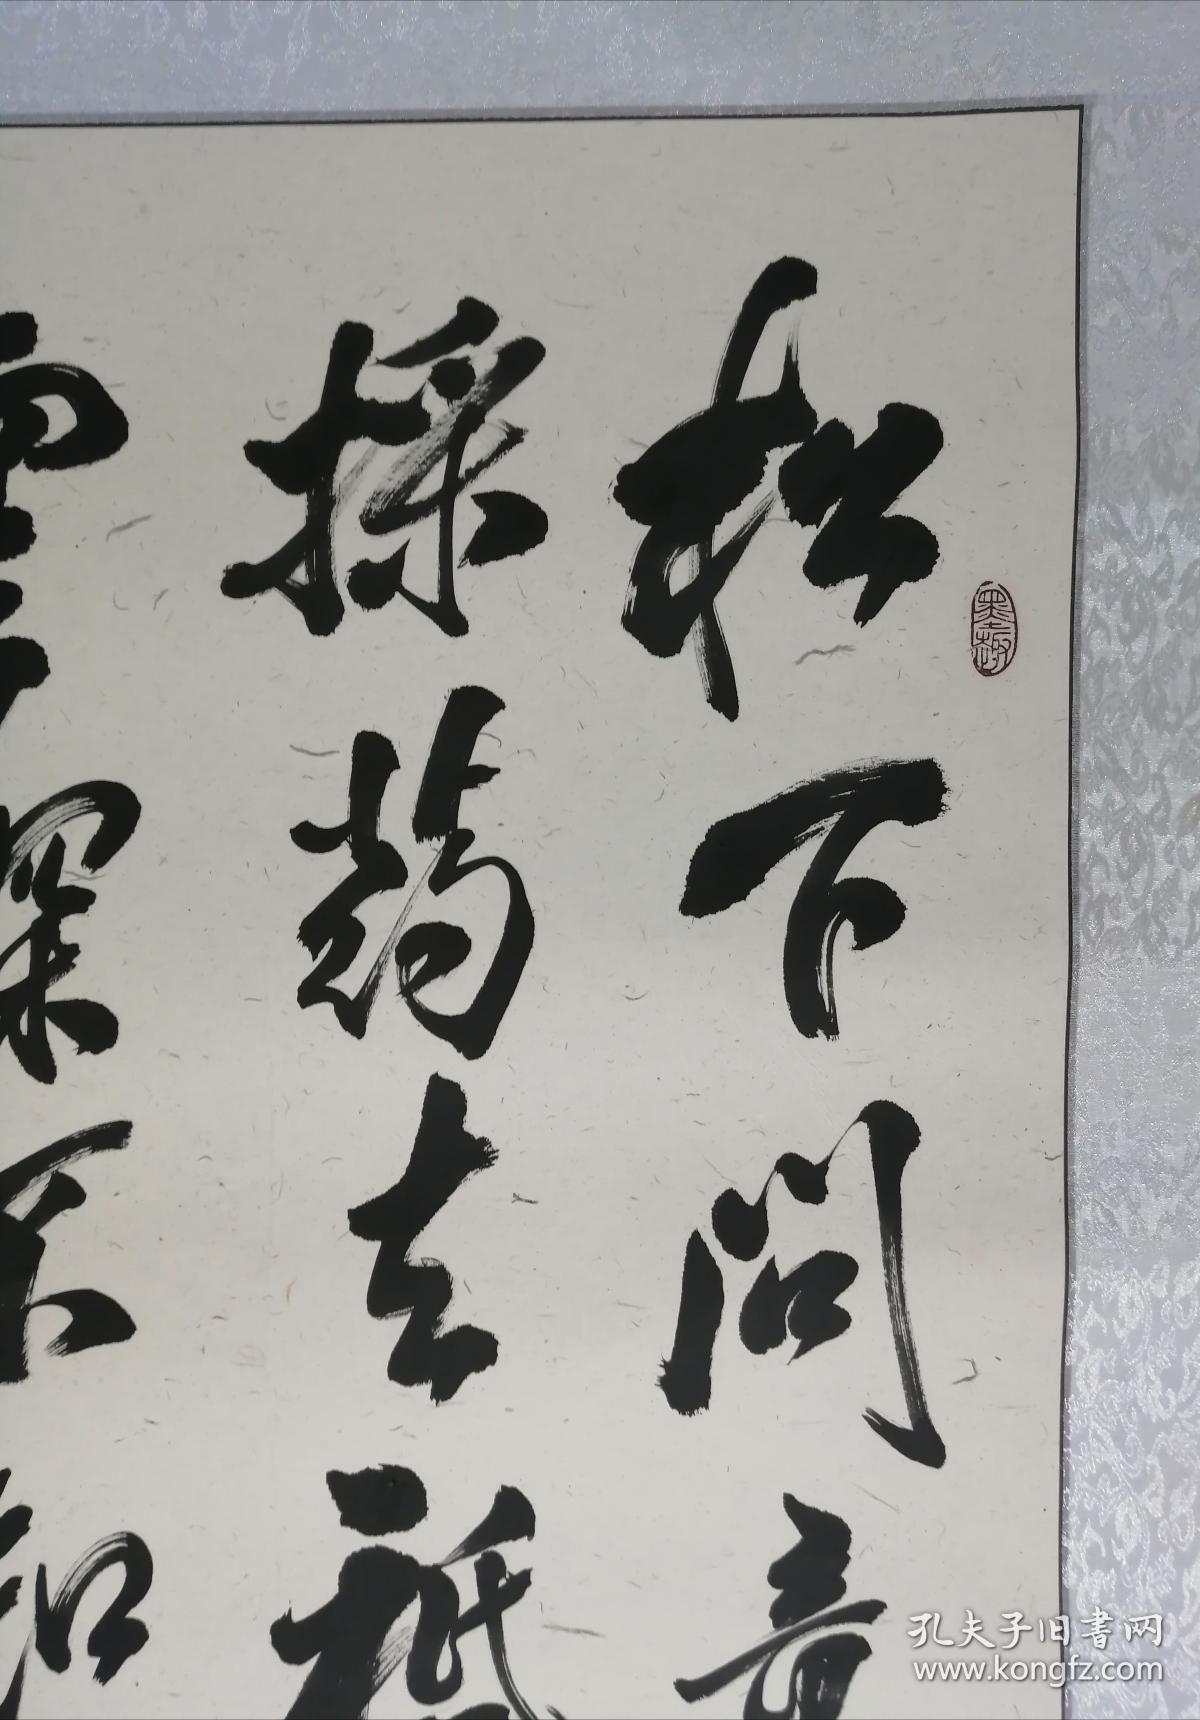 松下问童
採药去祗
云深不知
墨趣
孔夫子旧書网
www.kongfz.com